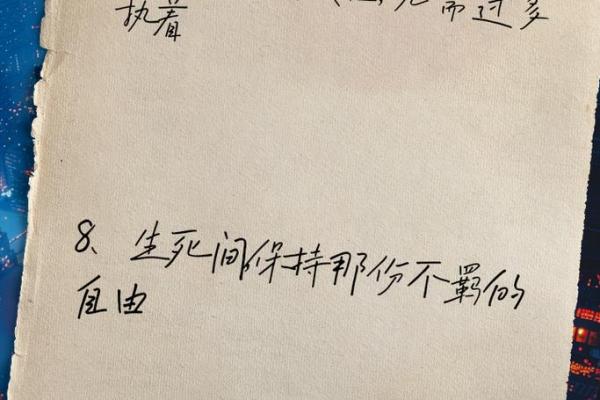 需过多
执着
8、生死间保持那份不羁的
自由